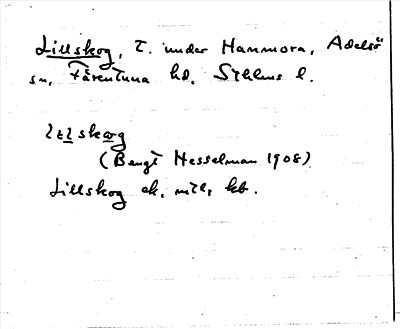 Lillskog, T. under Hammora, Adelsö
sn, Färentuna hd, Sthlms l.
skog
(Bengt Hesselman 1908)
Lillskog ek, mtl, kb.